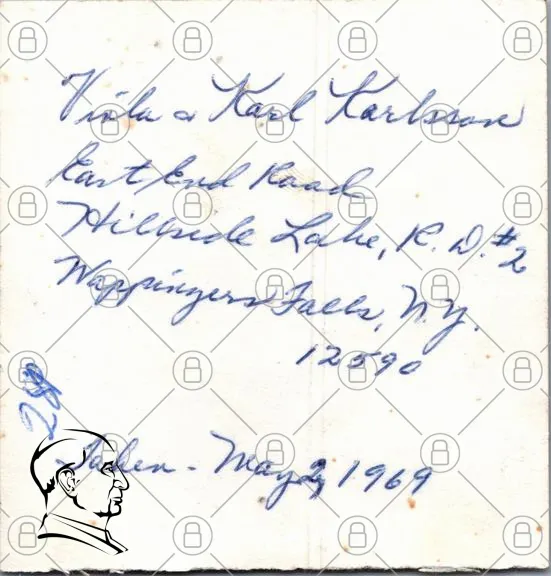 Viola & Karl Karlsson
East End Road
Hillside Lake, R. D. #2
Wappingers Falls, N.Y.
12590
Taken - May 1969